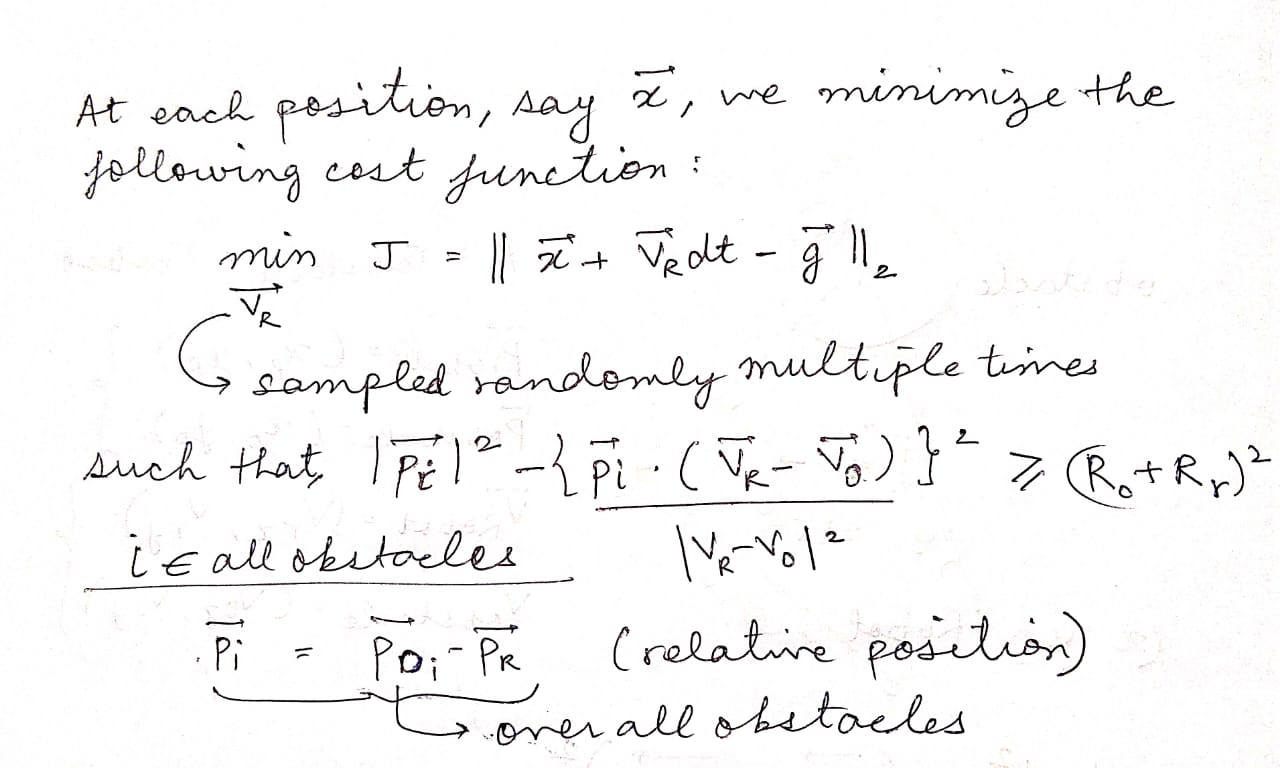 At each position, say x⃗, we minimize the
following cost function :
min J = || x⃗ + V⃗_R dt - g⃗ ||₂
V⃗_R
↳ sampled randomly multiple times
such that, |P⃗i|² - {P⃗i · (V⃗_R - V⃗_O)}² ≥ (R_o + R_r)²
i ∈ all obstacles |V_R - V_O|²
P⃗i = P⃗_Oi - P⃗_R (relative position)
↳ over all obstacles